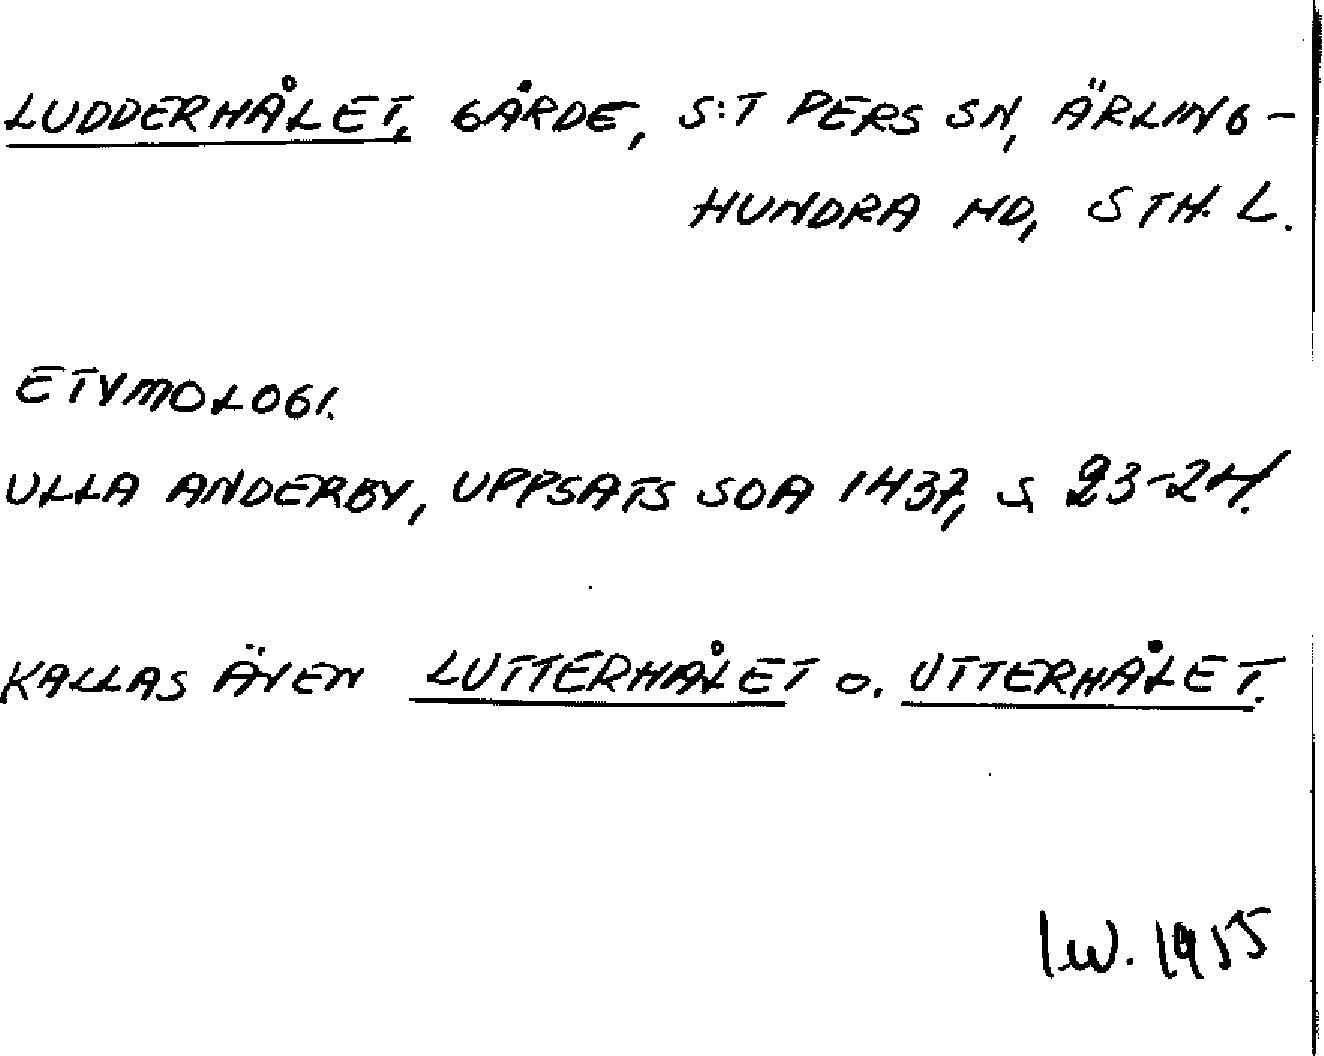 LUDDERHÅLET, GÄRDE, S:T PERS SN, ÄRLING-
HUNDRA HD, STH. L.
ETYMOLOGI.
ULLA ANDERBY, UPPSATS SOA 1437, S. 23-24.
KALLAS ÄVEN LUTTERHÅLET O. UTTERHÅLET.
I.W. 1955